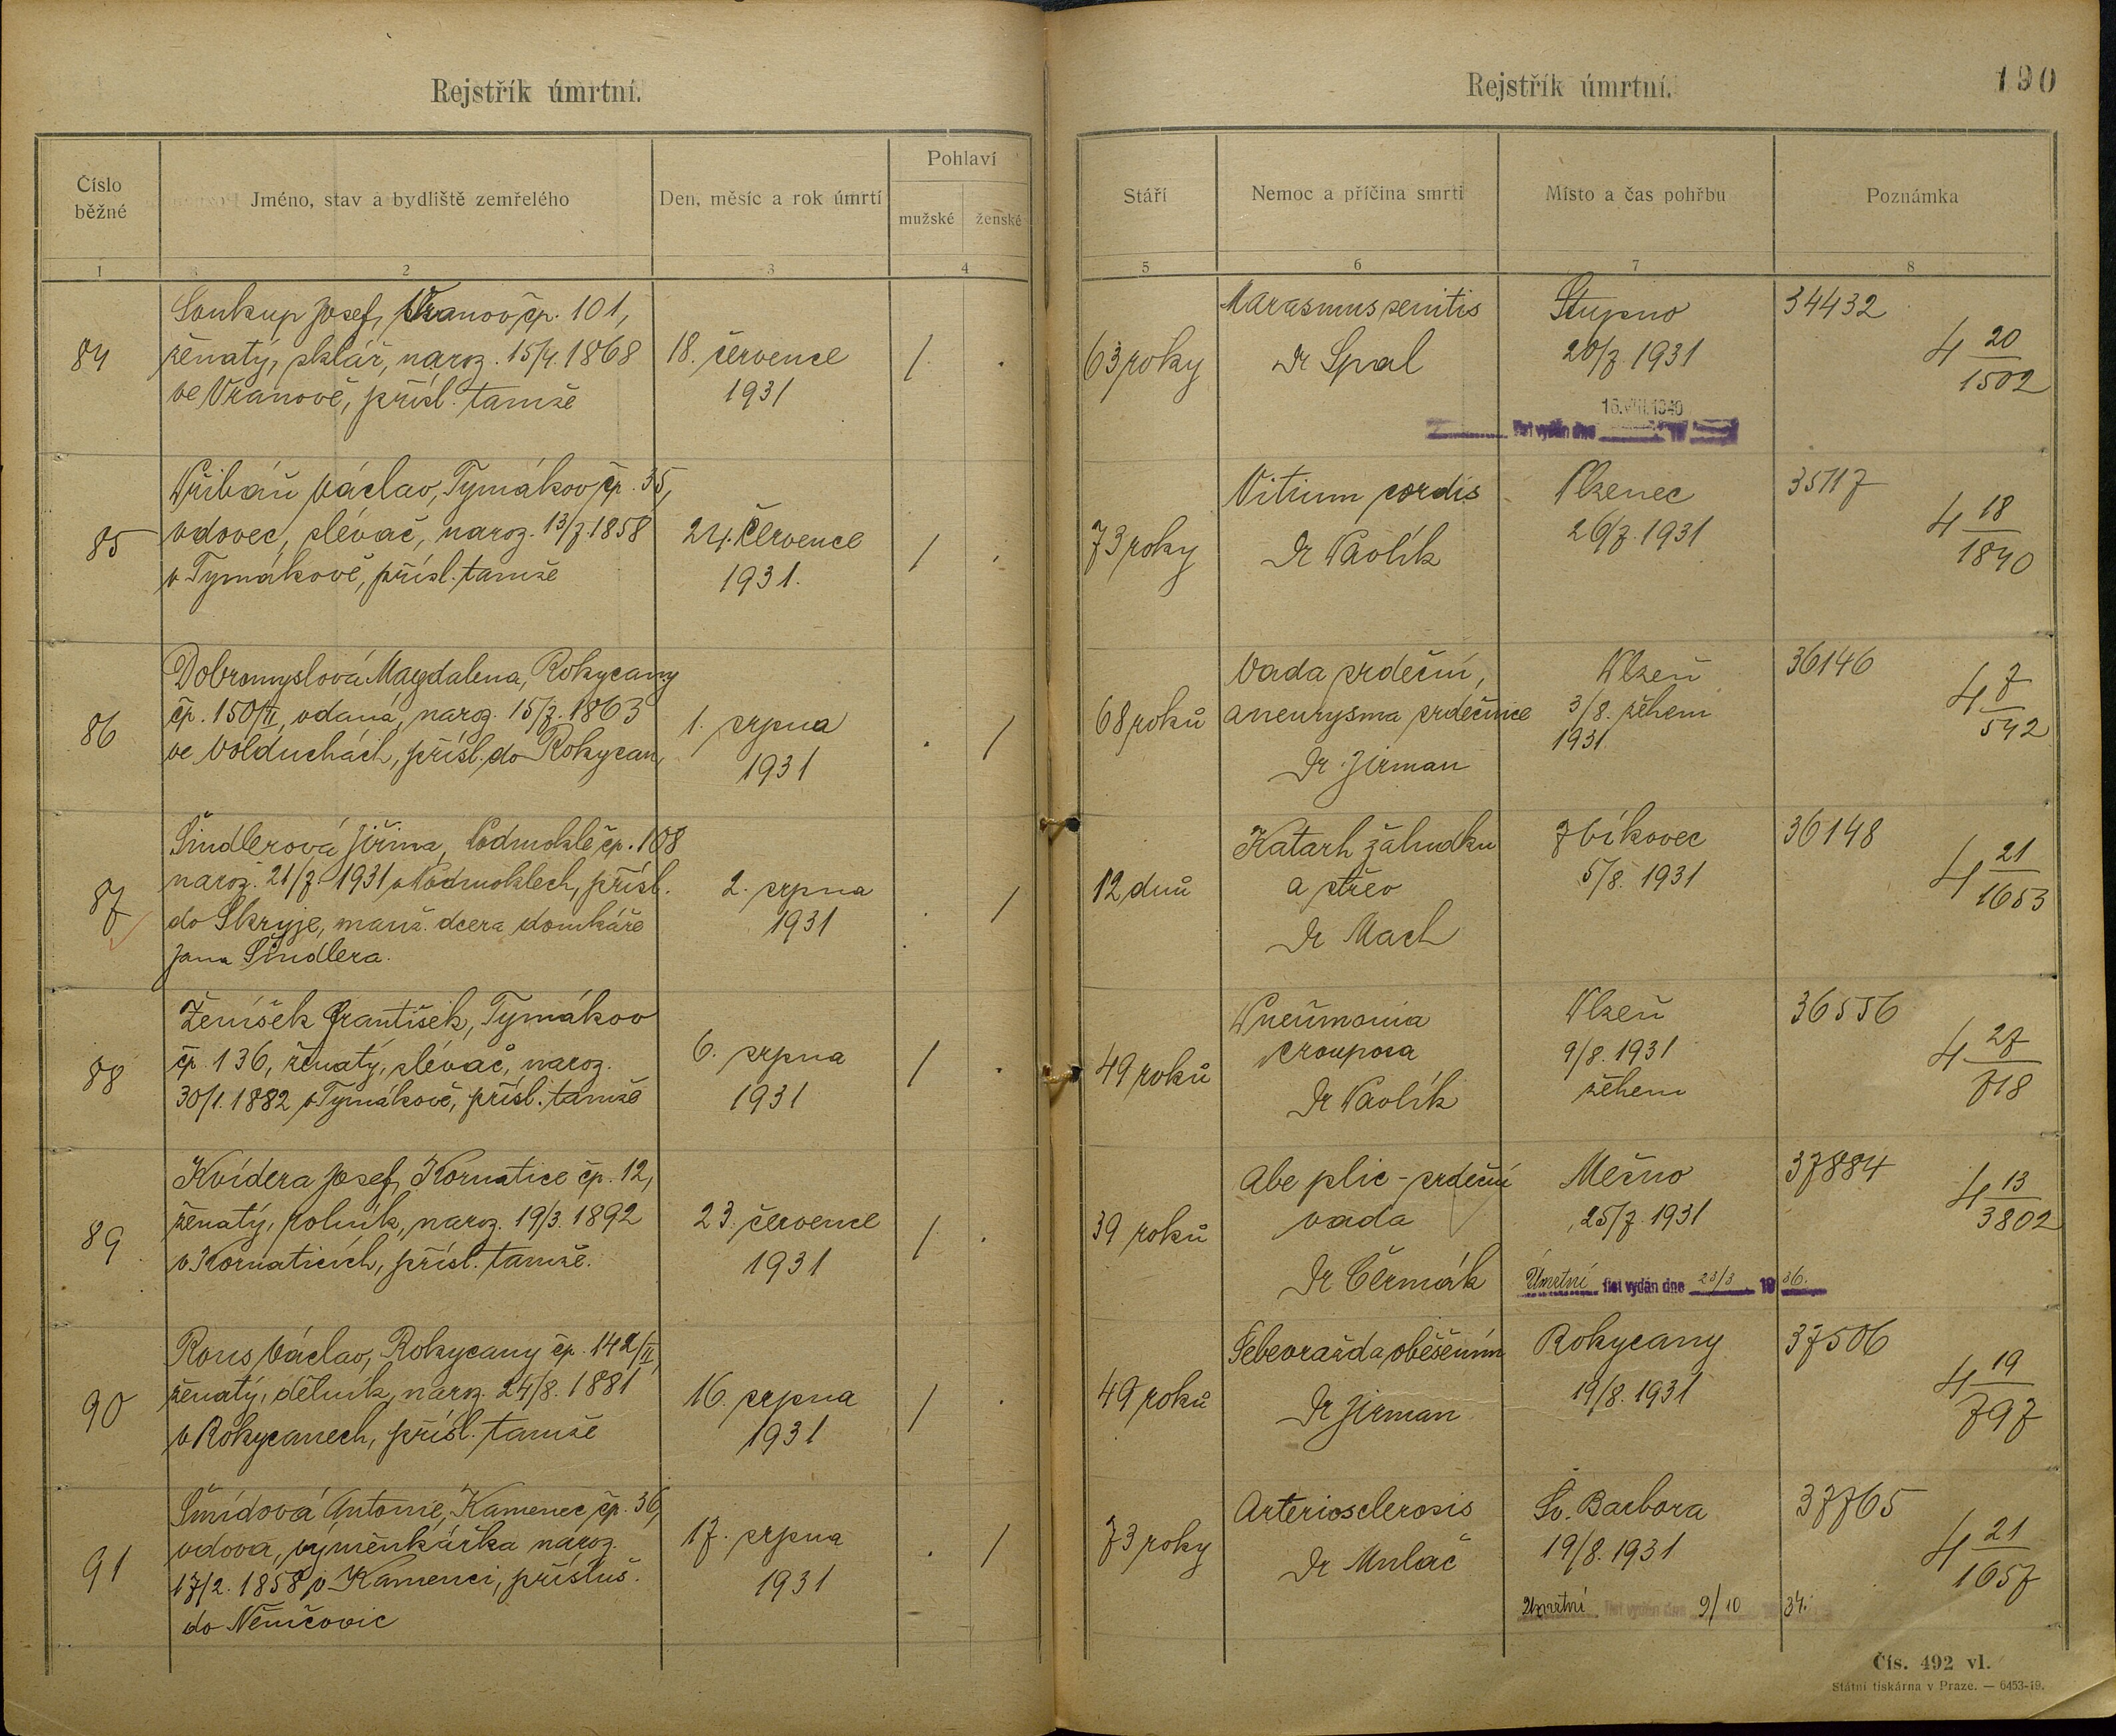 Rejstřík úmrtní.
Číslo běžné
Jméno, stav a bydliště zemřelého
Den, měsíc a rok úmrtí
Pohlaví
mužské
ženské
1
2
3
4
84
Soukup Josef, Vranov čp. 101,
ženatý, sklář, naroz. 15/4. 1868
ve Vranově, přísl. tamže
18. července
1931
/
.
85
Přibáň Václav, Tymákov čp. 35,
vdovec, slévač, naroz. 13/7. 1858
v Tymákově, přísl. tamže
24. července
1931.
/
.
86
Dobromyslová Magdalena, Rokycany
čp. 150/II, vdaná, naroz. 15/7. 1863
ve Volduchách, přísl. do Rokycan,
1. srpna
1931
.
/
87
Šindlerová Jiřina, Podmokle čp. 108
naroz. 21/7. 1931 v Podmoklech, přísl.
do Skryje, manž. dcera domkáře
Jana Šindlera.
2. srpna
1931
.
/
88
Ženíšek František, Tymákov
čp. 136, ženatý, slévač, naroz.
30/1. 1882 v Tymákově, přísl. tamže
6. srpna
1931
/
.
89
Kvídera Josef, Kornatice čp. 12,
ženatý, rolník, naroz. 19/3. 1892
v Kornaticích, přísl. tamže.
23. července
1931
/
.
90
Rous Václav, Rokycany čp. 142/II,
ženatý, dělník, naroz. 24/8. 1881
v Rokycanech, přísl. tamže
16. srpna
1931
/
.
91
Šmídová Antonie, Kamenec čp. 36,
vdova, výměnkářka naroz.
17/2. 1858 v Kamenci, přísluš.
do Němčovic
17. srpna
1931
.
/
Rejstřík úmrtní.
190
Stáří
Nemoc a příčina smrti
Místo a čas pohřbu
Poznámka
5
6
7
8
63 roky
Marasmus senilis
Dr Spal
Stupno
20/7. 1931
15.VIII.1940
list vydán dne 19
34432
4 20/1502
73 roky
Vitium cordis
Dr Pavlík
Plzenec
26/7. 1931
35117
4 18/1840
68 roků
Vada srdeční,
aneurysma srdečnice
Dr Jirman
Plzeň
3/8. žehem
1931
36146
4 7/542
12 dnů
Katarh žaludku
a střev
Dr Mach
Zbíkovec
5/8. 1931
36148
4 21/1653
49 roků
Pneumonia
crouposa
Dr Pavlík
Plzeň
9/8. 1931
žehem
36556
4 27/718
39 roků
Abc plic - srdeční
vada
Dr Čermák
Mešno
25/7. 1931
Úmrtní list vydán dne 23/3 1936.
37884
4 13/3802
49 roků
Sebevražda oběšením
Dr Jirman
Rokycany
19/8. 1931
37506
4 19/797
73 roky
Arteriosclerosis
Dr Mulač
Sv. Barbora
19/8. 1931
Úmrtní list vydán dne 9/10 34.
37765
4 21/1657
Čís. 492 vl.
Státní tiskárna v Praze. — 6453-19.